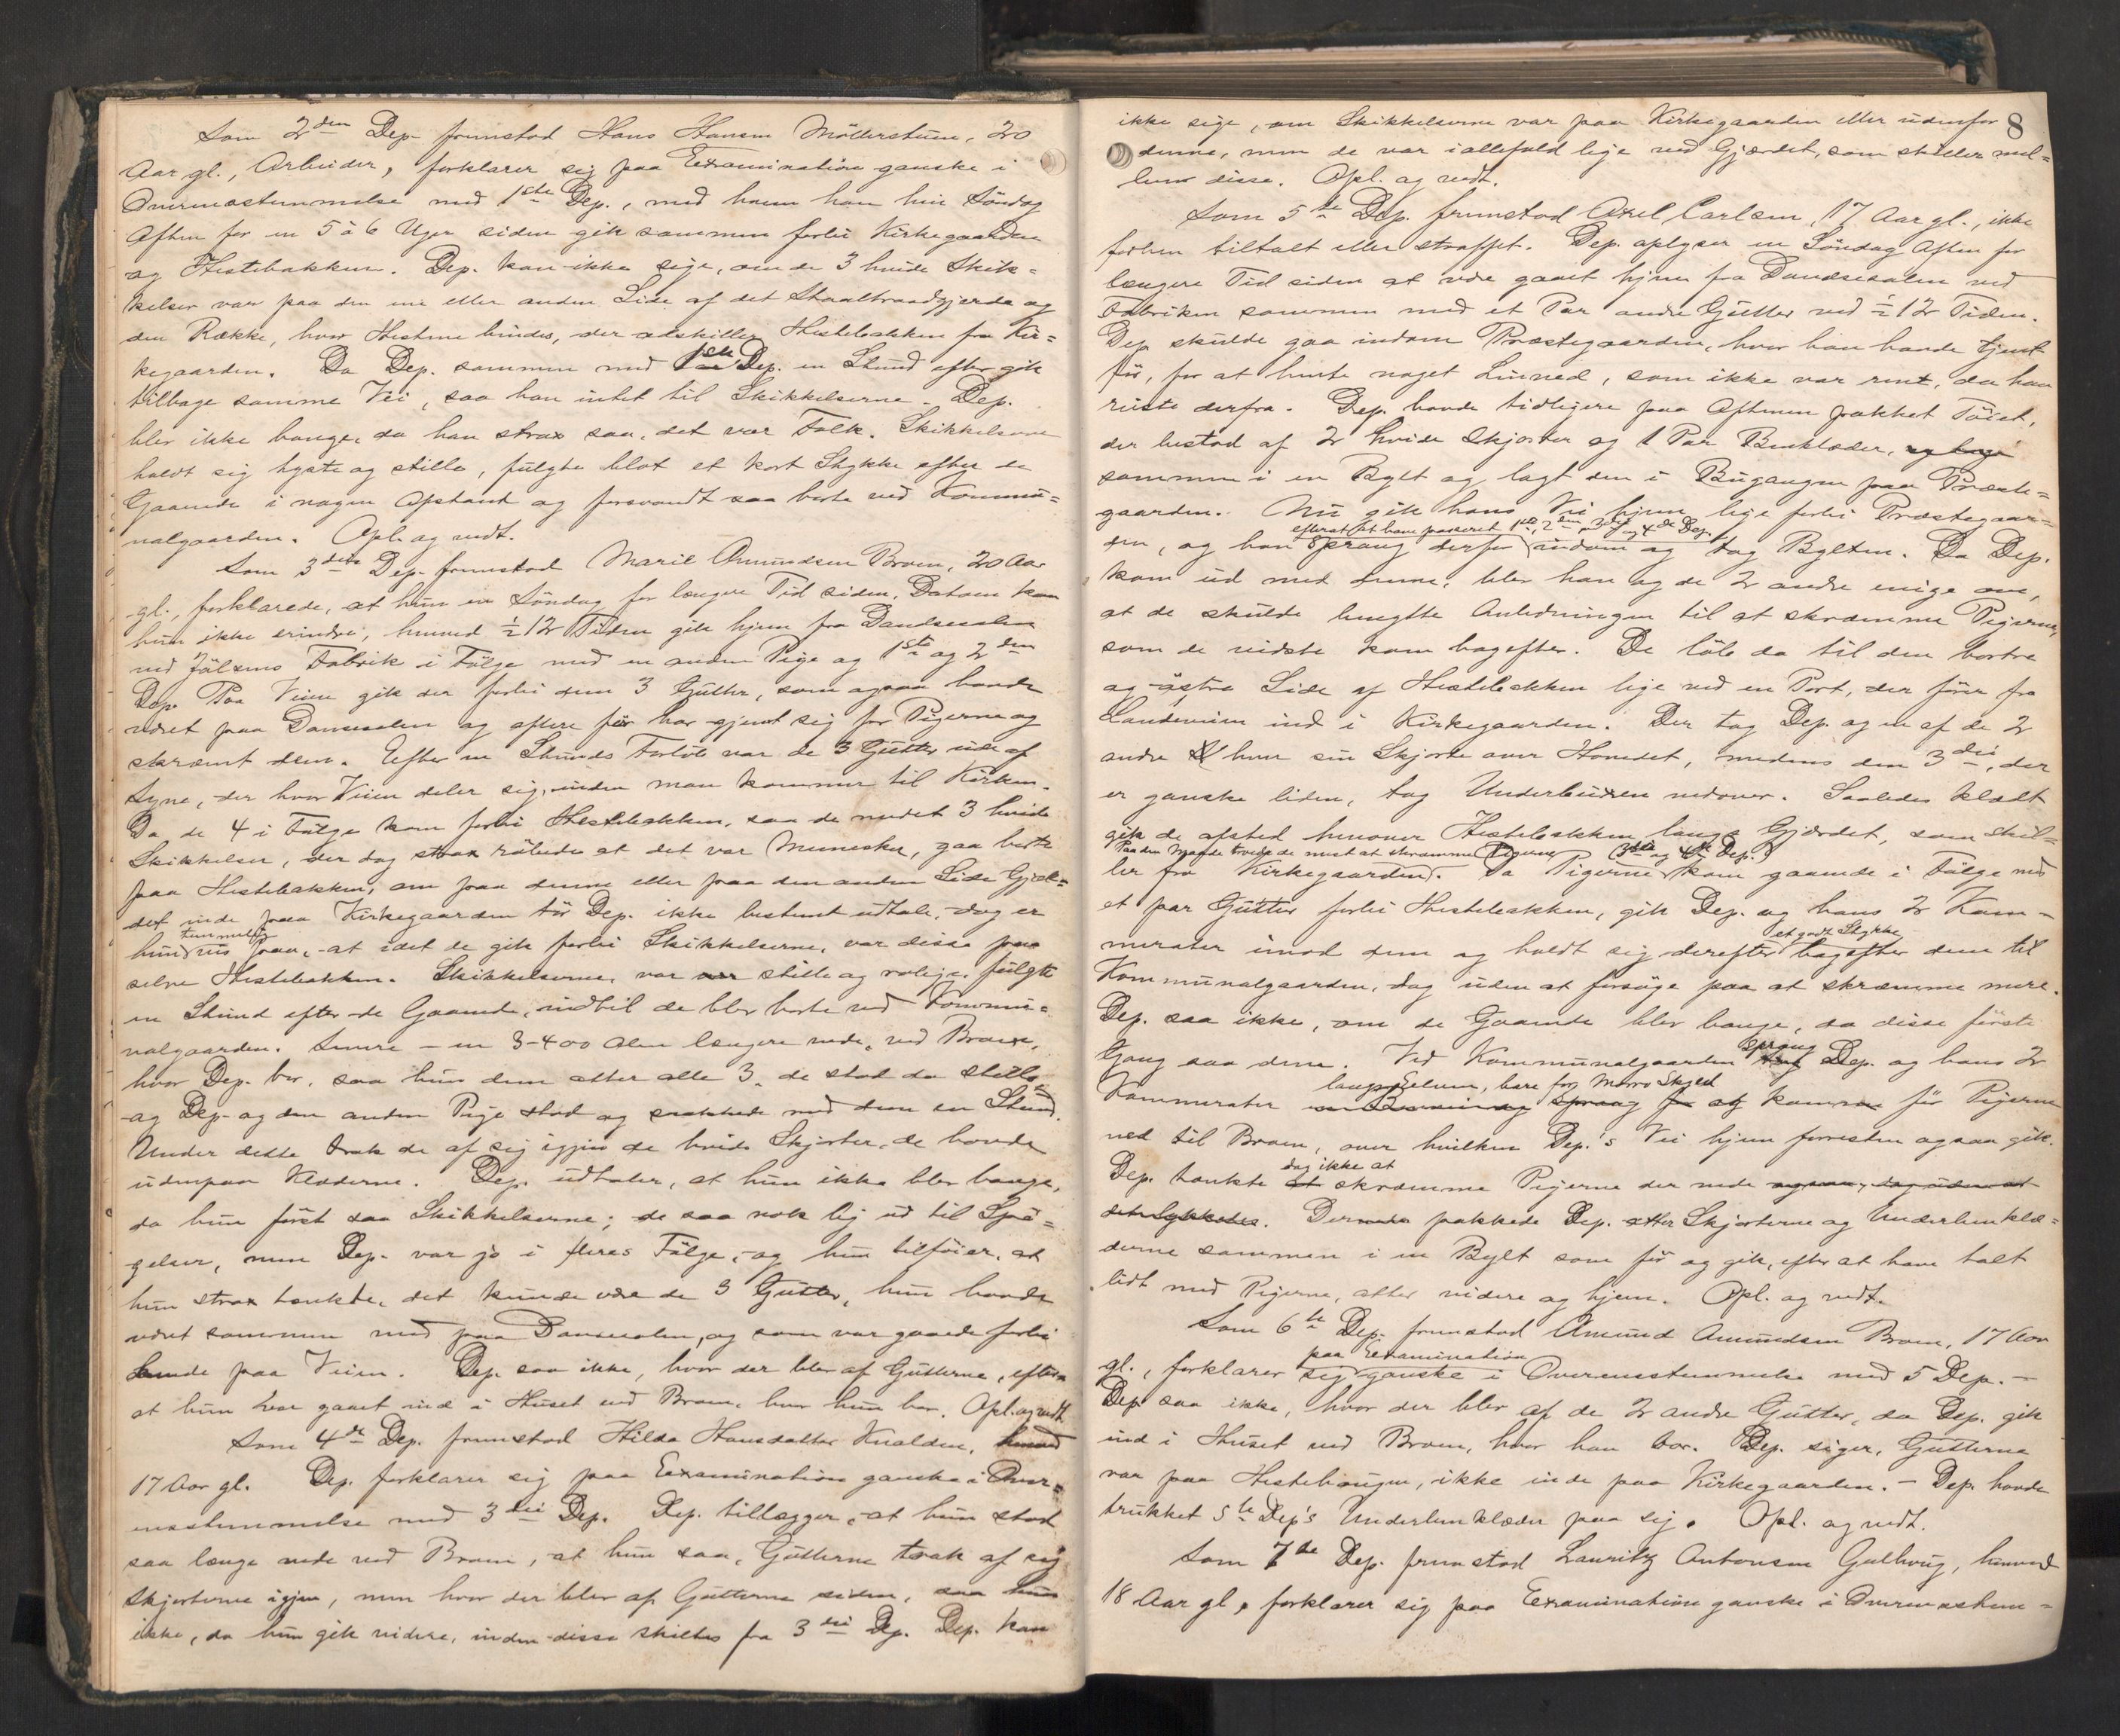 Som 2den Dep. fremstod Hans Hansen Möllerstuen, 20
Aar gl., Arbeider, forklarer sig paa Examination ganske i
Overensstemmelse med 1ste Dep., med hvem han hin Söndag
Aften for en 5 à 6 Uger siden gik sammen forbi Kirkegaarden
og Hestebakken. Dep. kan ikke sige, om de 3 hvide Skik=
kelser var paa den ene eller anden Side af det Staaltraadgjerde og
den Række, hvor Hestene bindes, der adskiller Hestebakken fra Kir=
kegaarden. Da Dep. sammen med 1ste Dep. en Stund efter gik
tilbage samme Vei, saa han intet til Skikkelserne. Dep.
blev ikke bange, da han strax saa, det var Folk. Skikkelserne
holdt sig tyste og stille, fulgte blot et kort Stykke efter de
Gaaende i nogen Afstand og forsvandt saa borte ved Kommu=
nalgaarden. Opl. og vedt.
Som 3die Dep. fremstod Marie Amundsen Broen, 20 Aar
gl., forklarede, at hun en Söndag for længere Tid siden, Datoen kan
hun ikke erindre, henved ½12 Tiden gik hjem fra Dandsesalen
ved Jölsens Fabrik i Fölge med en anden Pige og 1ste og 2den
Dep. Paa Veien gik der forbi dem 3 Gutter, som ogsaa havde
været paa Dansesalen og oftere för har gjemt sig for Pigerne og
skræmt dem. Efter en Stunds Forlöb var de 3 Gutter ude af
Syne, der hvor Veien deler sig, inden man kommer til Kirken.
Da de 4 i Fölge kom forbi Hestebakken, saa de nævnte 3 hvide
Skikkelser, der dog strax röbede at det var Mennesker, gaa borte
paa Hestebakken, om paa denne eller paa den anden Side Gjær=
det inde paa Kirkegaarden tör Dep. ikke bestemt udtale, dog er
hun temmelig vis paa, at idet de gik forbi Skikkelserne, var disse paa
selve Hestebakken. Skikkelserne var stille og rolige, fulgte
en Stund efter de Gaaende, indtil de blev borte ved Kommu=
nalgaarden. Senere – en 3-400 Alen længere nede, ved Broen,
hvor Dep. bor, saa hun dem atter alle 3, de stod da stille
og Dep. og den anden Pige stod og snakkede med dem en Stund.
Under dette trak de af sig igjen de hvide Skjorter, de havde
udenpaa Klæderne. Dep. udtaler, at hun ikke blev bange,
da hun först saa Skikkelserne; de saa nok lig ud til Spö=
gelser, men Dep. var jo i fleres Fölge, og hun tilföier, at
hun strax tænkte, det kunde være de 3 Gutter, hun havde
været sammen med paa Dansesalen, og som var gaaede forbi
hende paa Veien. Dep. saa ikke, hvor der blev af Gutterne, efter
at hun var gaaet ind i Huset ved Broen, hvor hun bor. Opl. og vedt.
Som 4de Dep. fremstod Hilda Hansdatter Knalden,
17 Aar gl. Dep. forklarer sig paa Examination ganske i Over=
ensstemmelse med 3die Dep. Dep. tillægger, at hun stod
saa længe nede ved Broen, at hun saa, Gutterne trak af sig
Skjorterne igjen, men hvor der blev af Gutterne siden, saa hun
ikke, da hun gik videre, inden disse skiltes fra 3die Dep. Dep. kan
8
ikke sige, om Skikkelserne var paa Kirkegaarden eller udenfor
denne, men de var iallefald lige ved Gjærdet, som skiller mel=
lem disse. Opl. og vedt.
Som 5te Dep. fremstod Axel Carlsen, 17 Aar gl., ikke
forhen tiltalt eller straffet. Dep. oplyser en Söndag Aften for
længere Tid siden at være gaaet hjem fra Dandsesalen ved
Fabriken sammen med et Par andre Gutter ved ½12 Tiden.
Dep. skulde gaa indom Præstegaarden, hvor han havde tjent
för, for at hente noget Linned, som ikke var rent, da han
reiste derfra. Dep. havde tidligere paa Aftenen pakket Töiet,
der bestod af 2 hvide Skjorter og 1 Par Benklæder,
sammen i en Bylt og lagt den i Bugangen paa Præste=
gaarden. Nu gik hans Vei hjem lige forbi Præstegaar=
den, og han sprang derfor efterat have passeret 1ste, 2den, 3die og 4de Dep. indom og tog Bylten. Da Dep.
kom ud med denne, blev han og de 2 andre enige om,
at de skulde benytte Anledningen til at skræmme Pigerne,
som de vidste kom bagefter. De löb da til den bortre
og östre Side af Hestebakken lige ved en Port, der förer fra
Landeveien ind i Kirkegaarden. Der tog Dep. og en af de 2
andre hver sin Skjorte over Hovedet, medens den 3die, der
er ganske liden, tog Underbuxen nedover. Saaledes klædt
gik de afsted henover Hestebakken langs Gjærdet, som skil=
ler fra Kirkegaarden. Paa den Maade troede de mest at skræmme Pigerne. Da Pigerne (3die og 4de Dep.) kom gaaende i Fölge med
et par Gutter forbi Hestebakken, gik Dep. og hans 2 Kam=
merater imod dem og holdt sig derefter et godt Stykke bagefter dem til
Kommunalgaarden, dog uden at forsöge paa at skræmme mere.
Dep. saa ikke, om de Gaaende blev bange, da disse förste
Gang saa dem. Ved Kommunalgaarden sprang Dep. og hans 2
Kammerater langs Elven, bare for Morro Skyld og kom för Pigerne
ned til Broen, over hvilken Dep.'s Vei hjem forresten ogsaa gik.
Dep. tænkte dog ikke at skræmme Pigerne der nede
Der pakkede Dep. atter Skjorterne og Underbenklæ=
derne sammen i en Bylt som för og gik, efter at have talt
lidt med Pigerne, atter videre og hjem. Opl. og vedt.
Som 6te Dep. fremstod Amund Amundsen Broen, 17 Aar
gl., forklarer sig paa Examination ganske i Overensstemmelse med 5 Dep. –
Dep. saa ikke, hvor der blev af de 2 andre Gutter, da Dep. gik
ind i Huset ved Broen, hvor han bor. Dep. siger, Gutterne
var paa Hestehaugen, ikke inde paa Kirkegaarden. – Dep. havde
trukket 5te Dep's Underbenklæder paa sig. Opl. og vedt.
Som 7de Dep. fremstod Lauritz Antonsen Gulhaug, henved
18 Aar gl., forklarer sig paa Examination ganske i Overensstem=